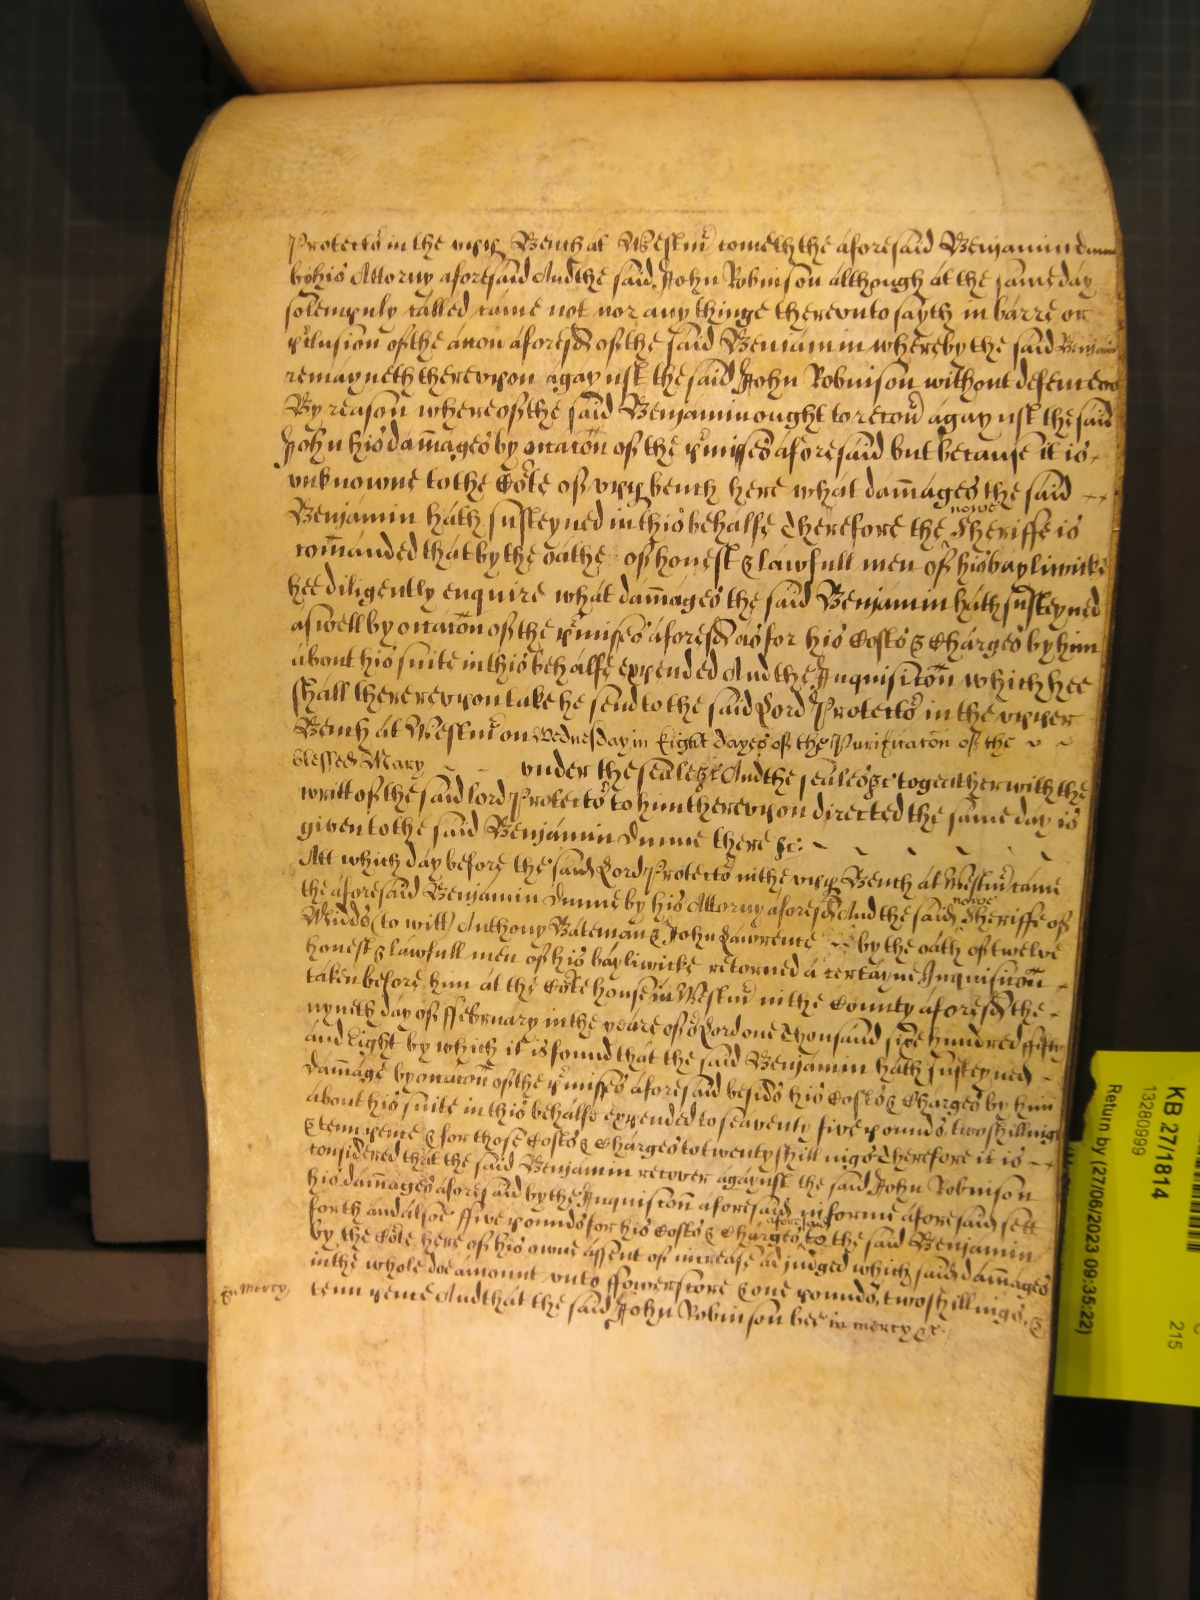 Protector in the upp Bench at Westmr cometh the aforesaid Benjamin Dunne
by his Attorny aforesaid And the said John Robinson although at the same day
solempnly called came not nor any thinge thereunto sayth in barre or
p'clusion of the accon aforesd of the said Benjamin whereby the said Benjamin
remayneth thereupon agaynst the said John Robinson without defence
By reason whereof the said Benjamin ought to recou' agaynst the said
John his dam̄ages by occacōn of the p'misses aforesaid but because it is
unknowne to the Co'te of upp bench here what dam̄ages the said
Benjamin hath susteyned in this behalfe Therefore the nowe Sheriffe is
com̄anded that by the oathe of honest & lawfull men of his bayliwicke
hee diligently enquire what dam̄ages the said Benjamin hath susteyned
aswell by occacōn of the p'misses aforesd as for his Costs & Charges by him
about his suite in this behalfe expended And the Inquisicōn which hee
shall therereupon take he send to the said Lord Protector in the upper
Bench at Westmr on Wednesday in Eight dayes of the Purificacōn of the
blessed Mary under the seale &c And the seales &c togeather with the
writt of the said lord Protector to him thereupon directed the same day is
given to the said Benjamin Dunne there &c:
Att which day before the said Lord Protector in the upp Bench at Westmr came
the aforesaid Benjamin Dunne by his Attorny aforesd And the said nowe Sheriffe of
Midds (to witt) Anthony Bateman & John Lawrence by the oath of twelve
honest & lawfull men of his bayliwicke retorned a certayne Inquisicōn
taken before him at the Co'te house in Westmr in the County aforesd the
nyneth day of ffebruary in the yeare of o' Lord one Thousand sixe hundred fifty
and Eight by which it is found that the said Benjamin hath susteyned
dam̄age by occacōn of the p'misses aforesaid besids his Costs & Charges by him
about his suite in this behalfe expended to seaventy five pounds, twoshillings
& tenn pence & for those Costs & Charges to twenty shillings Therefore it is
considered that the said Benjamin recover agaynst the said John Robinson
his dam̄ages aforesaid by the Inquisicōn aforesaid in forme aforesaid sett
forth and alsoe ffive pounds for his Costs & Charges aforesaid to the said Benjamin
by the Co'te here of his owne assent of increase adjudged which said dam̄ages
in the whole doe amount unto ffowerscore & one pounds, twoshillings, &
In Mercy tenn pence And that the said John Robinson bee in mercy &c
KB 27/1814
13280999
215
Return by (27/06/2023 09:35:22)